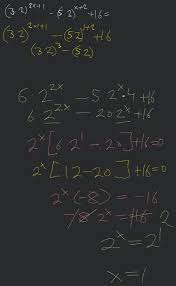 (3·2)^{2x+1} - (5·2)^{x+2} + 16 =
(3·2)^{2x+1} - (5·2)^{x+2} + 16
(3·2)^3 - (5·2)
6·2^{2x} - 5·2^x·4 +16
6·2^{2x} - 20·2^x +16
2^x [6·2^1 - 20] +16=0
2^x [12-20] +16=0
2^x (-8) = -16
-8 2^x = -16 2
2^x = 2^1
x=1